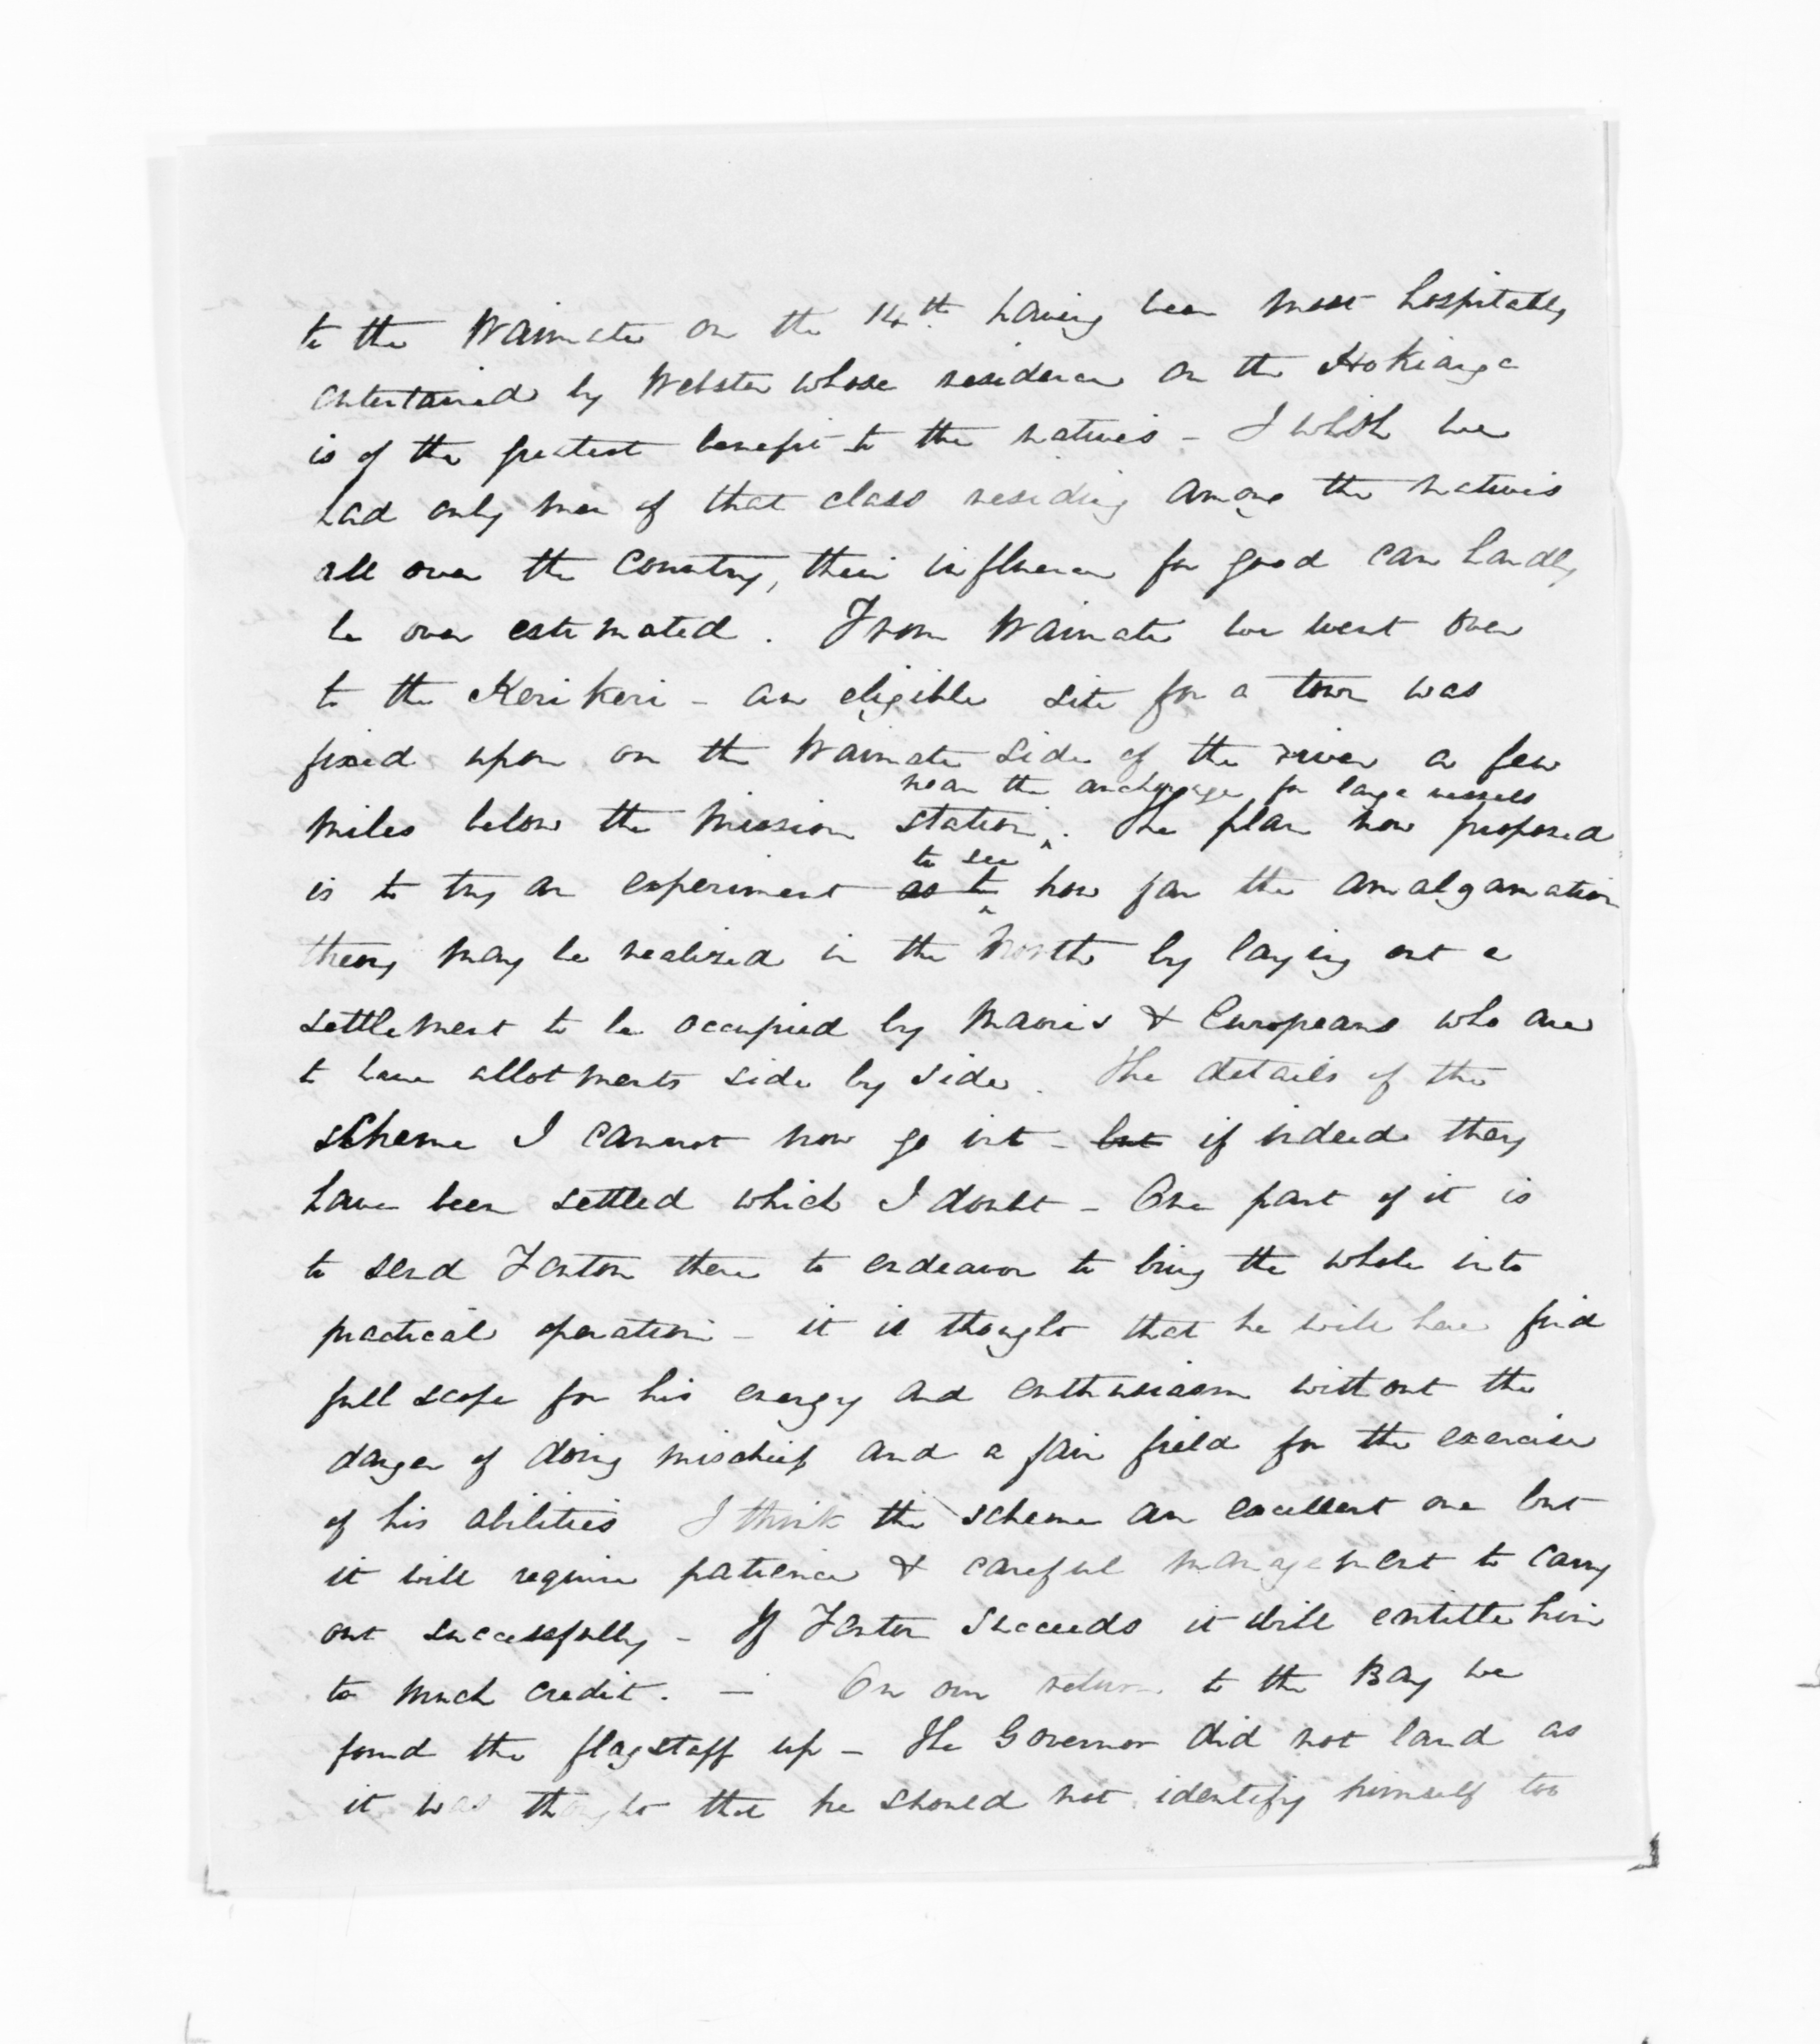 to the Waimate on the 14th. having been most hospitably
entertained by Webster whose residence on the Hokianga
is of the greatest benefit to the natives - I wish we
had only men of that class residing among the natives
all over the Country, their influence for good can hardly
be over estimated. From Waimate we went over
to the Keri Keri - an eligible site for a town was
fixed upon on the Waimate side of the river a few
near the anchorage for large vessels
miles below the Mission station. The plan now proposed
to see
is to try an experiment as to how far the amalgamation
theory may be realized in the North by laying out a
settlement to be occupied by Maoris & Europeans who are
to have allotments side by side. The details of the
scheme I cannot now go into - but if indeed they
have been settled which I doubt - One part of it is
to send Fenton there to endeavor to bring the whole into
practical operation - it is thought that he will here find
full scope for his energy and enthusiasm without the
danger of doing mischief and a fair field for the exercise
of his abilities I think the scheme an excellent one but
it will require patience & careful management to carry
out successfully - If Fenton succeeds it will entitle him
to much credit. - On our return to the Bay we
found the flagstaff up - The Governor did not land as
it was thought that he should not identify himself too